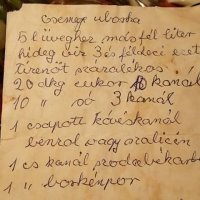 Csemege uborka
5 l üveghez másfél liter
hideg víz 3 és féldeci ecet
tizenöt százalékos
20 dkg cukor 10 kanál
10 " só 3 kanál
1 csapott kávéskanál
benzol vagy szalicin
1 cs kanál szódabikarbó
1 " borkénpor